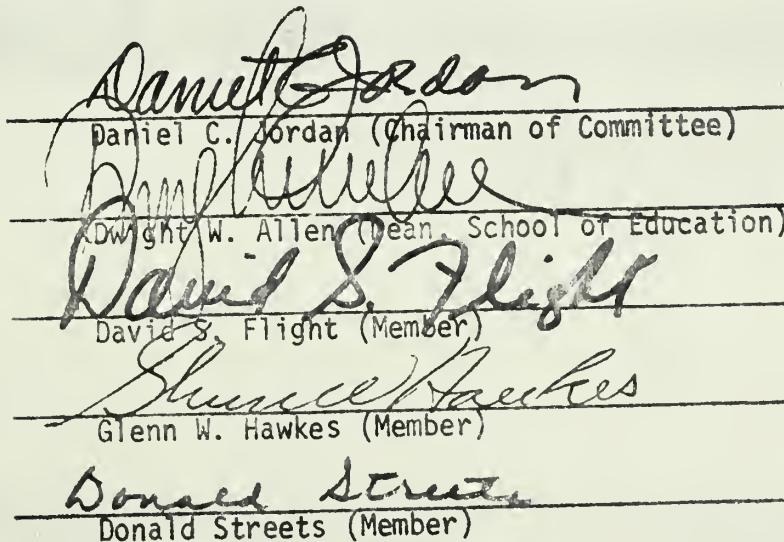 Daniel C. Jordan
Daniel C. Jordan (Chairman of Committee)
Dwight W. Allen (Dean, School of Education)
David S. Flight
David S. Flight (Member)
Glenn W. Hawkes
Glenn W. Hawkes (Member)
Donald Streets
Donald Streets (Member)